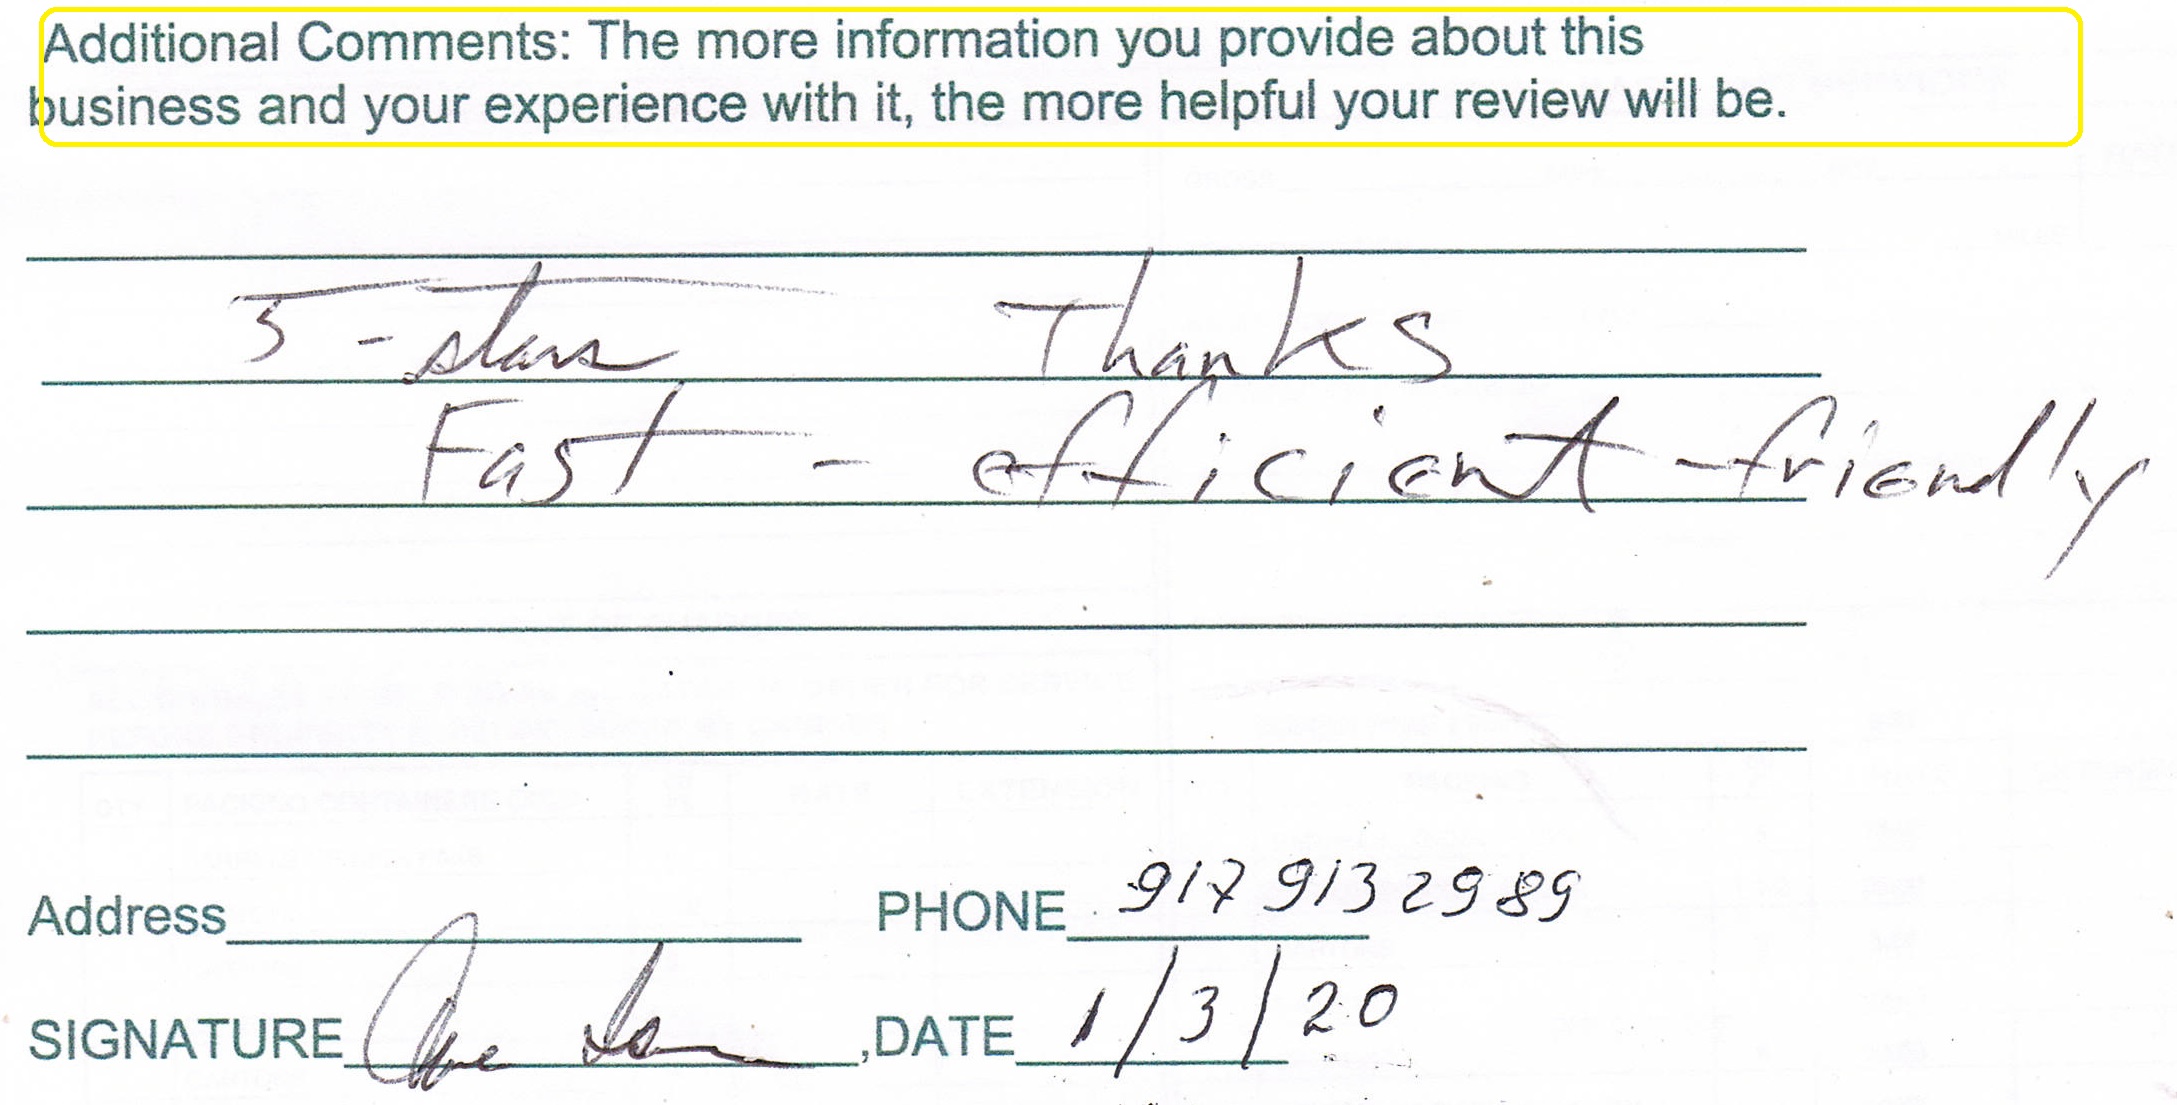 Additional Comments: The more information you provide about this
business and your experience with it, the more helpful your review will be.
5 - stars Thanks
Fast - efficient - friendly
Address PHONE 917 913 2989
SIGNATURE ,DATE 1/3/20